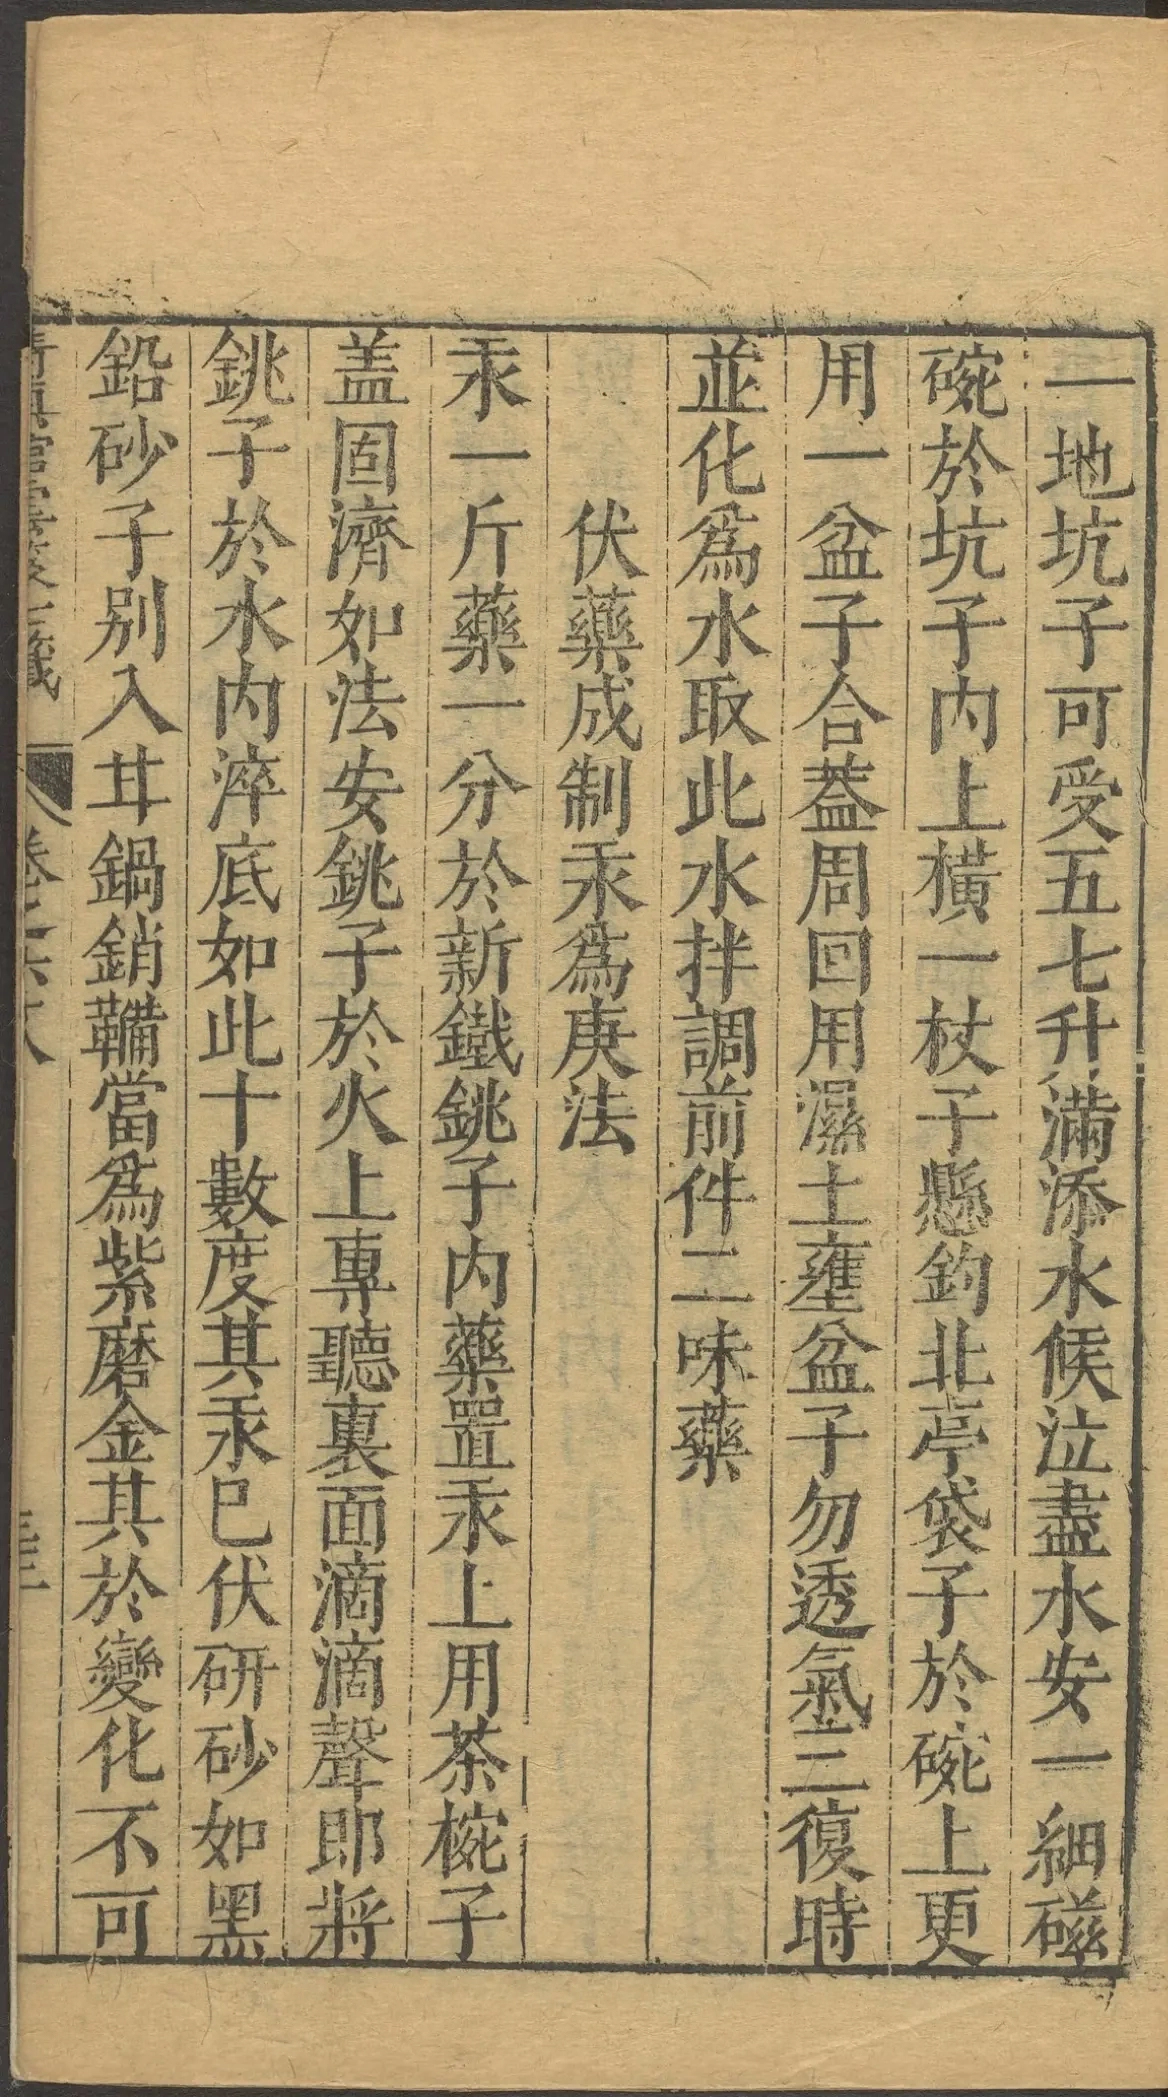 一地坑子可受五七升滿添水候泣盡水安一細磁
碗於坑子內上橫一杖子懸鈎北亭袋子於碗上更
用一盆子合蓋周回用濕土壅盆子勿透氣二復時
並化爲水取此水拌調前件二味藥
伏藥成制汞爲庚法
汞一斤藥一分於新鐵銚子內藥置汞上用茶椀子
盖固濟如法安銚子於火上專聽裏面滴滴聲即將
銚子於水內淬底如此十數度其汞已伏研砂如黑
鉛砂子别入甘鍋銷鞴當爲紫磨金其於變化不可